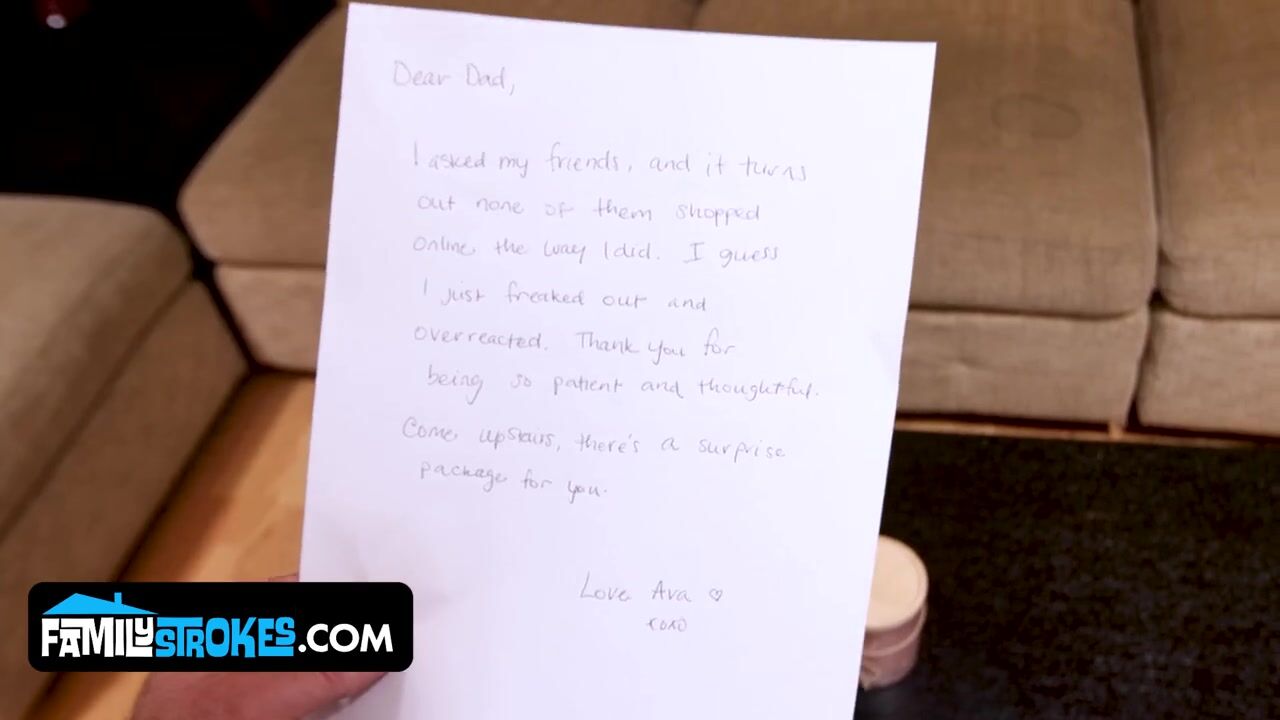 Dear Dad,
I asked my friends, and it turns
out none of them shopped
online the way I did. I guess
I just freaked out and
overreacted. Thank you for
being so patient and thoughtful.
Come upstairs, there's a surprise
package for you.
Love Ava ♡
xoxo
FAMILYSTROKES.COM